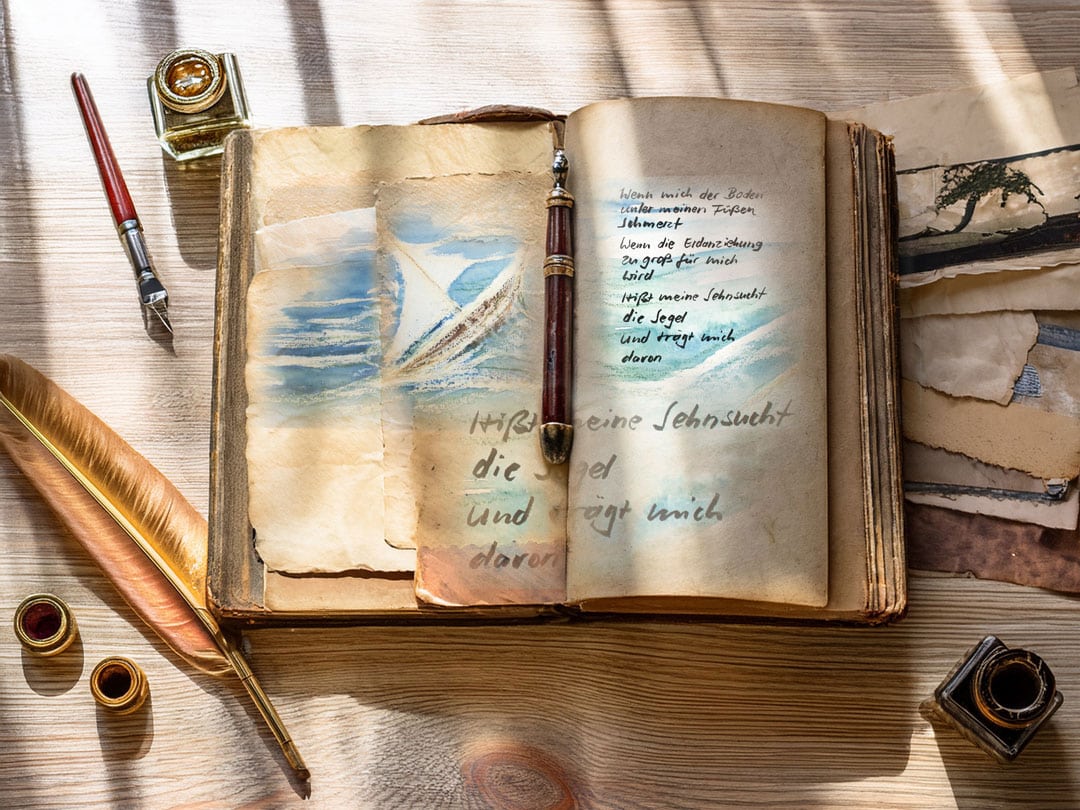 Wenn mich der Boden
unter meinen Füßen
schmerzt
Wenn die Erdanziehung
zu groß für mich
wird
Hißt meine Sehnsucht
die Segel
und trägt mich
davon
Hißt meine Sehnsucht
die Segel
und trägt mich
davon